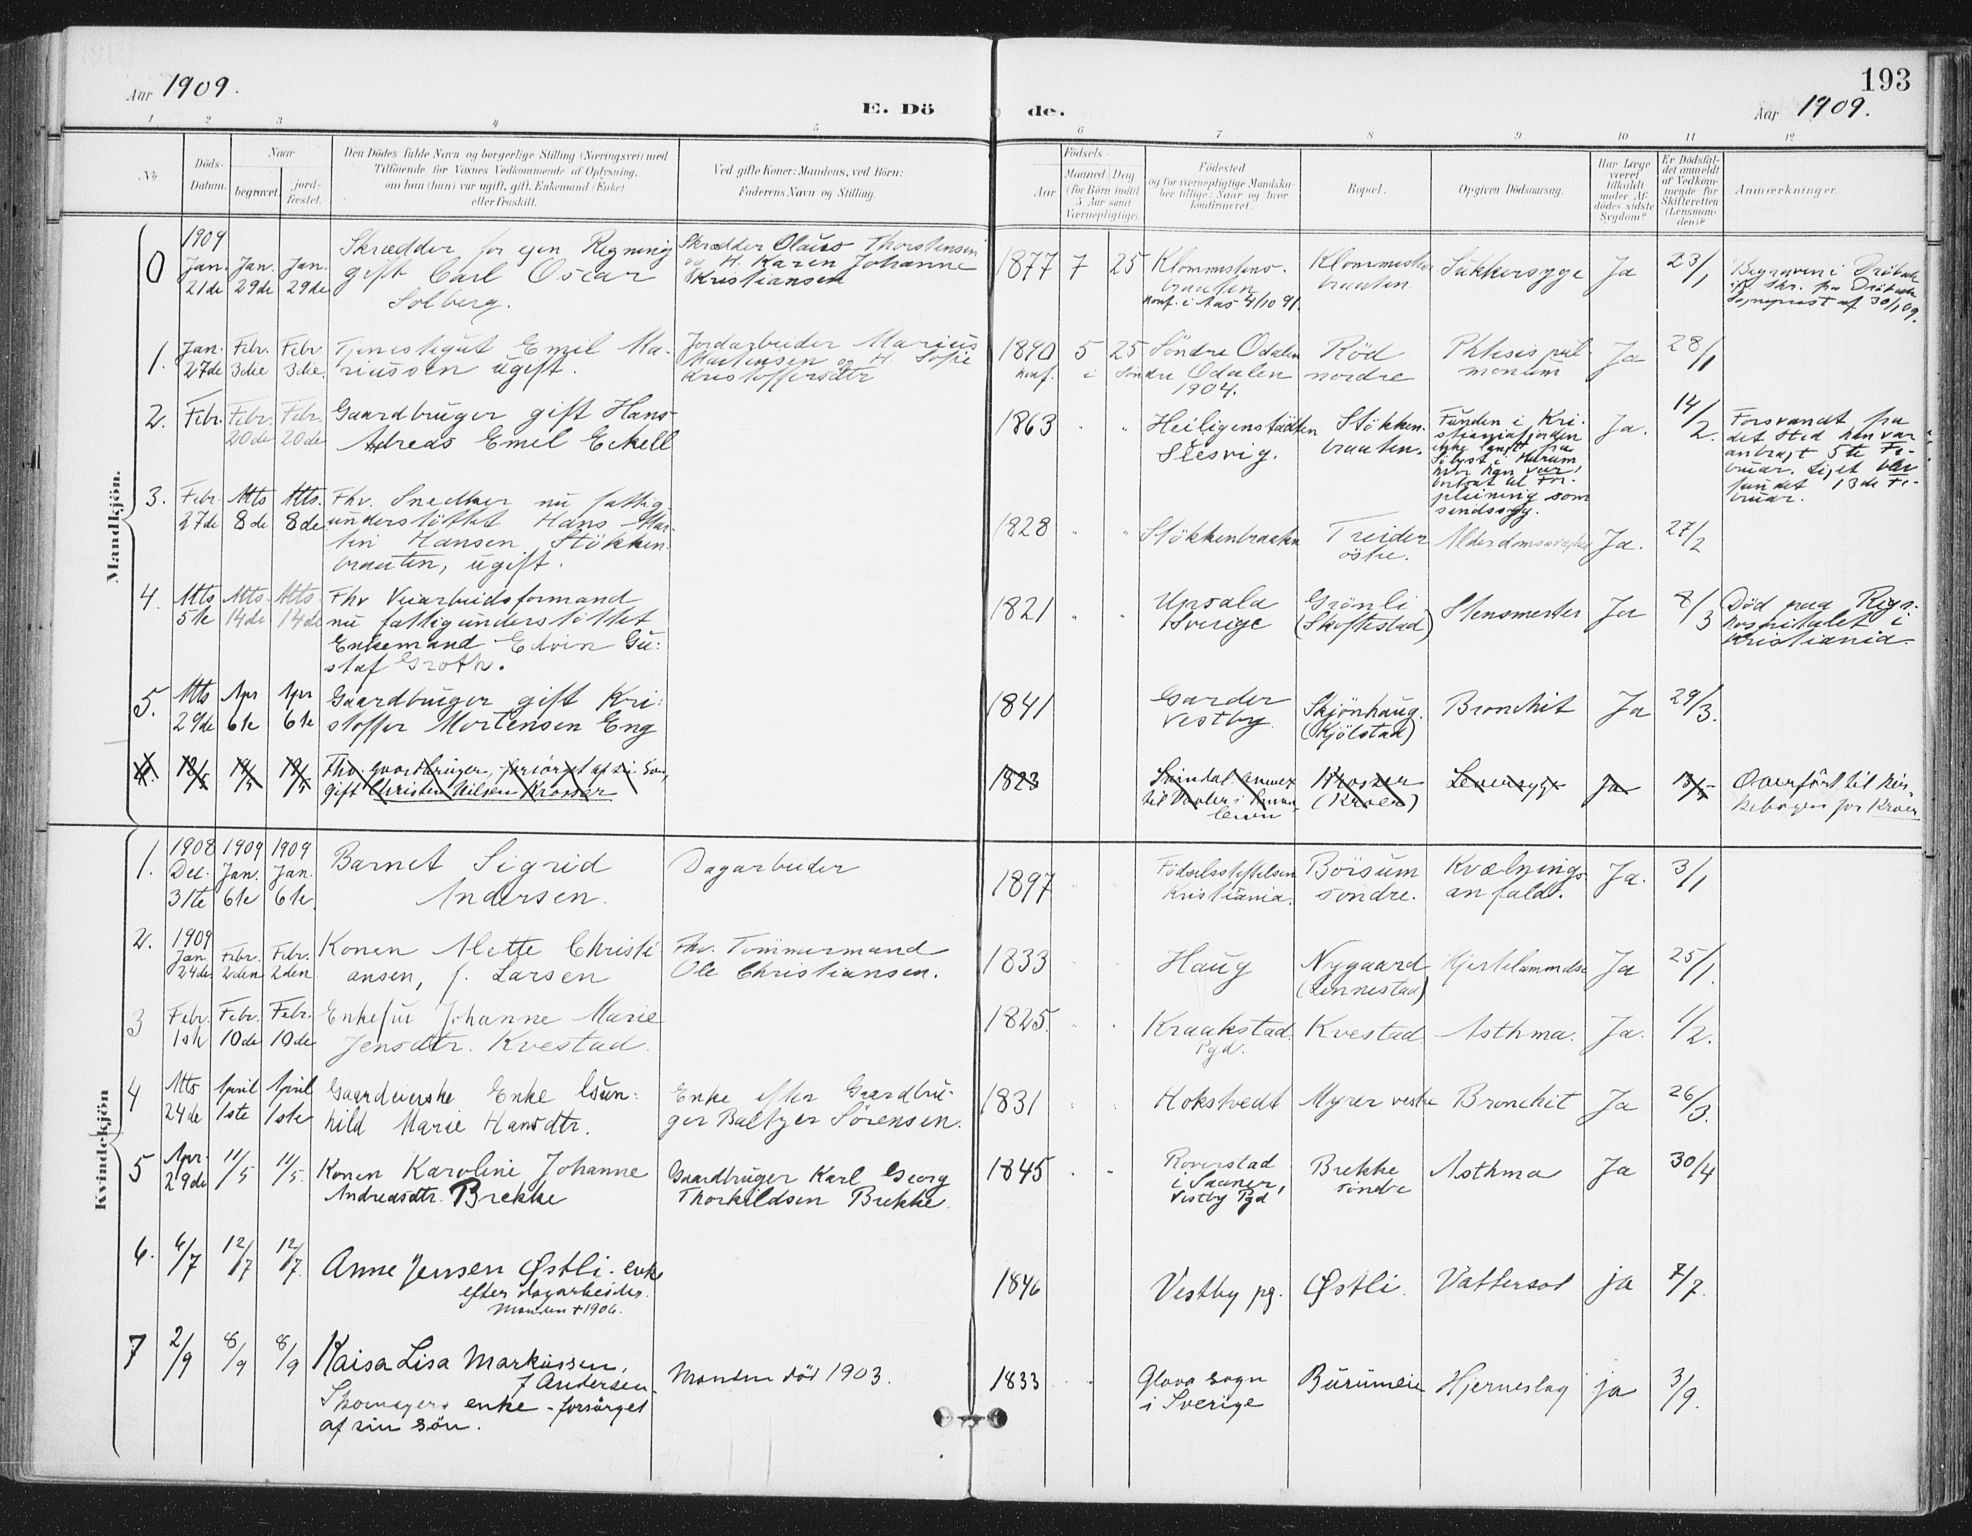 193
Aar 1909.
E. Döde.
Aar 1909.
1 2 3 4 5 6 7 8 9 10 11 12
No.
Döds-Datum.
Naar
begravet.
jord-fæstet.
Den Dödes fulde Navn og borgerlige Stilling (Næringsvei) med
Tilföiende for Voxnes Vedkommende af Oplysning,
om han (hun) var ugift, gift, Enkemand (Enke)
eller fraskilt.
Ved gifte Koner: Mandens, ved Börn:
Faderens Navn og Stilling.
Födsels-
Aar
Maaned Dag
(for Börn indtil
5 Aar samt
Værnepligtige).
Födested
og for værnepligtige Mandska-
ber tillige: Naar og hvor
konfirmeret.
Bopæl.
Opgiven Dödsaarsag.
Har Læge
været
tilkaldt
under Af-
dödes sidste
Sygdom?
Er Dödsfal-
det anmeldt
af Vedkom-
mende for
Skifteretten
(Lensman-
den)?
Anmærkninger.
Mandkjön.
0 1909 Jan. 21de Jan. 29de Jan. 29de
Skrædder for egen Regning
gift Carl Oscar
Solberg.
Skrædder Olaus Thorstensen
og H. Karen Johanne
Kristiansen
1877 7 25
Klommestens-
braaten
konf. i Aas 4/10 91.
Klommesten
braaten
Sukkersyge Ja 23/1
Begraven i Dröbak
Sogneprest af 30/1 09.
1. Jan. 27de Febr. 3die Febr 3die
Tjenestegut Emil Ma-
riussen ugift.
Jordarbeider Marius
Martensen og H. Sofie
Kristoffersdtr
1890 5 25 Söndre Odalen
konf. i Söndre Odalen
1904.
Röd
nordre
Phtisis pul-
monum
Ja 28/1
2. Febr. Febr. 20de Febr. 20de
Gaardbruger gift Hans
Adreas Emil Eckell
1863 " "
Heiligenstädten
Slesvig.
Stökken-
braaten.
Funden i Kri-
stianiafjorden
ikke langt fra
hvor han var
som
sindssyg.
Ja. 14/2.
Forsvandt fra
det sted han var
anbragt 5te Fe-
bruar. Liget blev
fundet 13de Fe-
bruar.
3. Febr. 27de Mts 8de Mts. 8de
Fhv. Snedker nu fattig-
understöttet Hans Mar-
tin Hansen Stökken-
braaten, ugift.
1828 " "
Stökkenbraaten
Treider
östre.
Alderdomssvaghed Ja. 27/2
4. Mts 5te Mts. 14de Mts. 14de
Fhv Veiarbeidsformand
nu fattigunderstöttet
Enkemand Edvin Gu-
staf Groth.
1821 " "
Upsala
Sverige
Grönli
(Skoftestad)
Stensmerter Ja 8/3
Död paa Rigs-
hospitalet i
Kristiania.
5. Mts 29de Apr 6te Apr 6te
Gaardbruger gift Kri-
stoffer Mortensen Eng
1841
Garder
Vestby
Skjönhaug.
(Kjölstad)
Bronchit Ja 29/3.
Fhv. gaardbruger, forsörget af sin Sön,
gift Christen Nilsen Krosser
1823
Krosser
(Kroer)
Leversyge Ja 13/5
Overfört til Kir-
kebogen for Kroer
Kvindekjön
1. 1908 Dec. 31te 1909 Jan. 6te 1909 Jan. 6te
Barnet Sigrid
Andersen.
Dagarbeider
1897
Födselsstiftelsen
Kristiania.
Börsum
söndre.
Kvælnings-
anfald.
Ja. 3/1
2. 1909 Jan 24de Febr. 2den Febr. 2den
Konen Mette Christi-
ansen, f. Larsen
Fhv. Tömmermand
Ole Christiansen.
1833
Haug
Nygaard
(Lennestad)
Hjertelammelse Ja 25/1.
3 Febr. 1ste Febr. 10de Febr. 10de
Enkefru Johanne Marie
Jensdtr. Kvestad.
1825.
Kraakstad
Pgd.
Kvestad Asthma. Ja. 1/2.
4 Mts 24de April 1ste April 1ste
Gaardeierske Enke Gun-
hild Marie Hansdtr.
Enke efter Gaardbru-
ger Baltzer Sörensen.
1831
Hokstvedt Myrer vestre Bronchit Ja 26/3.
5 Apr. 29de 11/5 11/5.
Konen Karoline Johanne
Andreasdtr. Brekke
Gaardbruger Karl Georg
Thorkildsen Brekke
1845
Roverstad
i Saaner,
Vestby Pgd
Brekke
söndre
Asthma Ja 30/4
6. 6/7 12/7 12/7.
Anne Jensen Østli. enke
efter dagarbeider.
Manden + 1906.
1846
Vestby pg. Østli. Vattersot ja 7/7.
7 2/9 8/9 8/9
Kaisa Lisa Markussen,
f Andersen.
Skomagers enke - forsörget
af sin sön.
Manden död 1903.
1833
Glava sogn
i Sverige
Burumeie Hjerneslag ja 3/9.